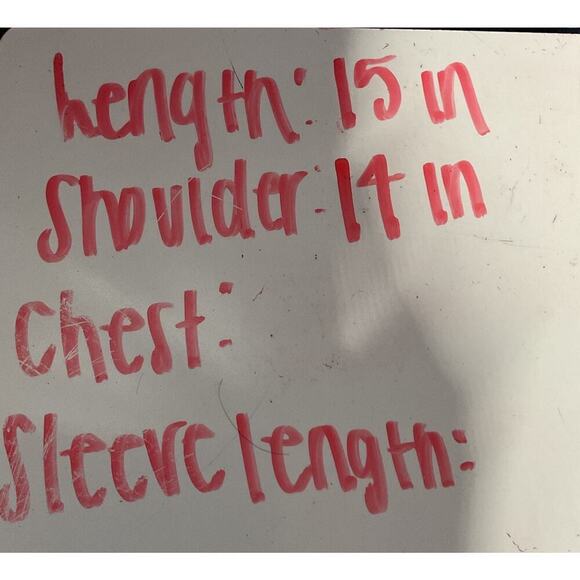 Length: 15 in
Shoulder: 14 in
Chest:
Sleeve length: